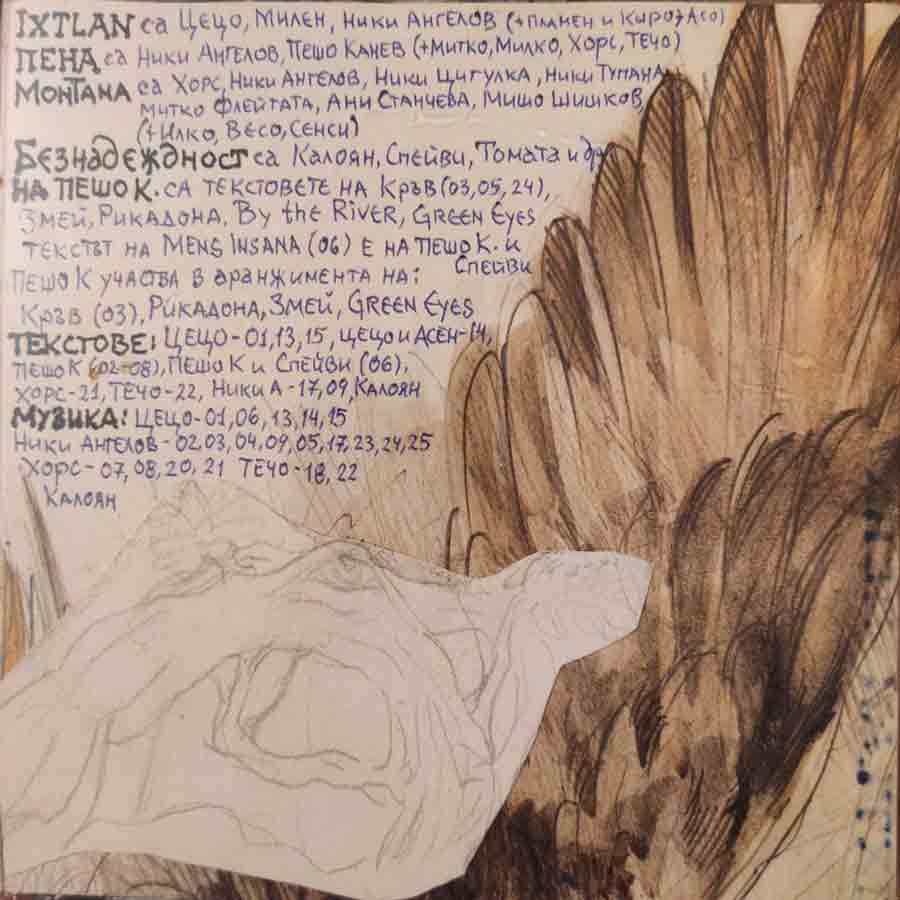 IXTLAN са Цецо, Милен, Ники Ангелов (+Пламен и Киро, Асо)
ПЕНА са Ники Ангелов, Пешо Канев (+Митко, Милко, Хорс, Течо)
МОНТАНА са Хорс, Ники Ангелов, Ники Цигулка, Ники Тумана
Митко Флейтата, Ани Станчева, Мишо Шишков,
(+Илко, Весо, Сенси)
БЕЗНАДЕЖДНОСТ са Калоян, Спейви, Томата и др
НА ПЕШО К. са текстовете на Кръв (03, 05, 24),
Змей, Рикадона, By the River, Green Eyes
текстът на Mens Insana (06) е на Пешо К. и
Спейви
Пешо К участва в аранжимента на:
Кръв (03), Рикадона, Змей, Green Eyes
ТЕКСТОВЕ: Цецо-01,13,15, Цецо и Асен-14,
Пешо К (02-08), Пешо К и Спейви (06),
Хорс-21, Течо-22, Ники А-17,09, Калоян
МУЗИКА: Цецо-01,06,13,14,15
Ники Ангелов-02.03,04.09,05,17,23,24,25
Хорс-07,08,20,21 Течо-18,22
Калоян